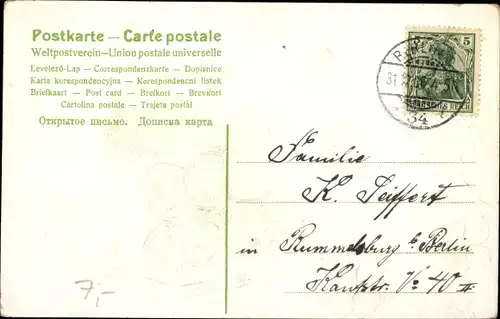 Postkarte — Carte postale
Weltpostverein — Union postale universelle
Levelező-Lap — Correspondenzkarte — Dopisnice
Karta korespondencyjna — Korespondencní lístek
Briefkaart — Post card — Brefkort — Brevkort
Cartolina postale — Trajeta postâl
Открытое письмо. Дописна карта
5
31.
34
Familie
K. Seiffert
in Rummelsburg b. Berlin
Kantstr. No 40 II
7,-